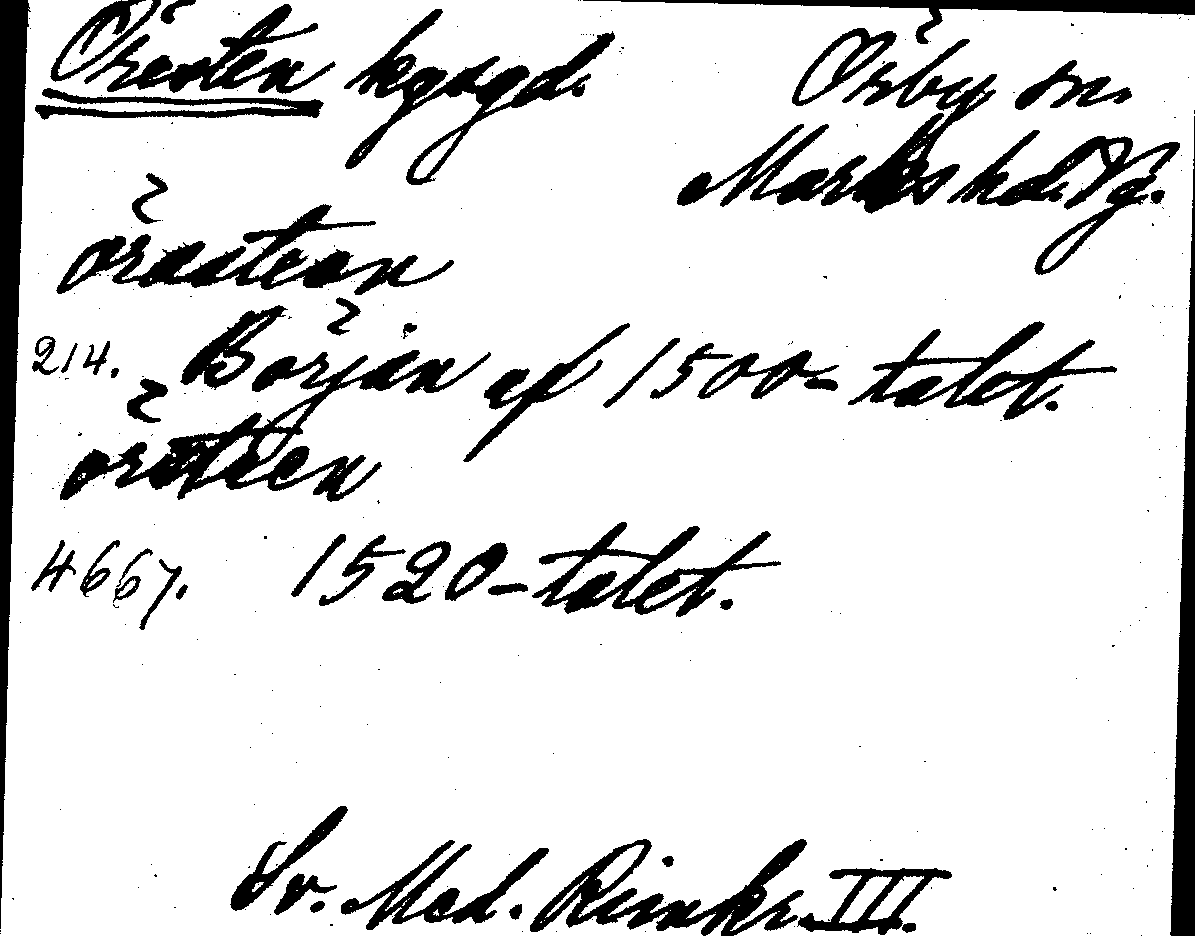 Öresten kgsgd. Örby sn.
Marks hd. Vg.
örasteen
214. Början af 1500-talet.
örsteen
4667. 1520-talet.
Sv. Med. Rimkr. III.